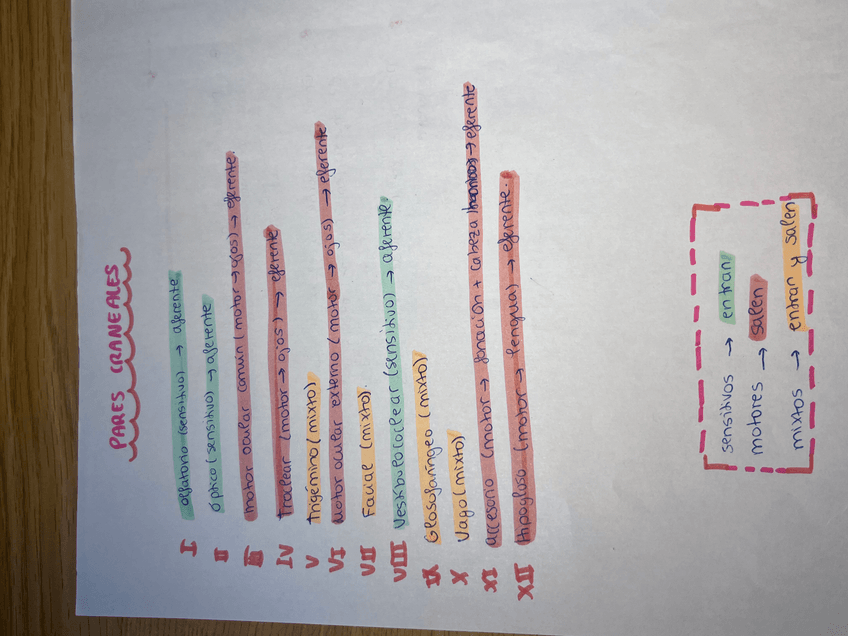 PARES CRANEALES
I olfatorio (sensitivo) → aferente
II óptico (sensitivo) → aferente
III motor ocular común (motor → ojos) → eferente.
IV Troclear (motor → ojos) → eferente
V Trigémino (mixto)
VI Motor ocular externo (motor → ojos) → eferente
VII Facial (mixto).
VIII Vestibulococlear (sensitivo) → aferente.
IX Glosofaríngeo (mixto)
X Vago (mixto)
XI accesorio (motor → fonación + cabeza → eferente
XII Hipogloso (motor → lengua) → eferente.
sensitivos → entran
motores → salen
mixtos → entran y salen